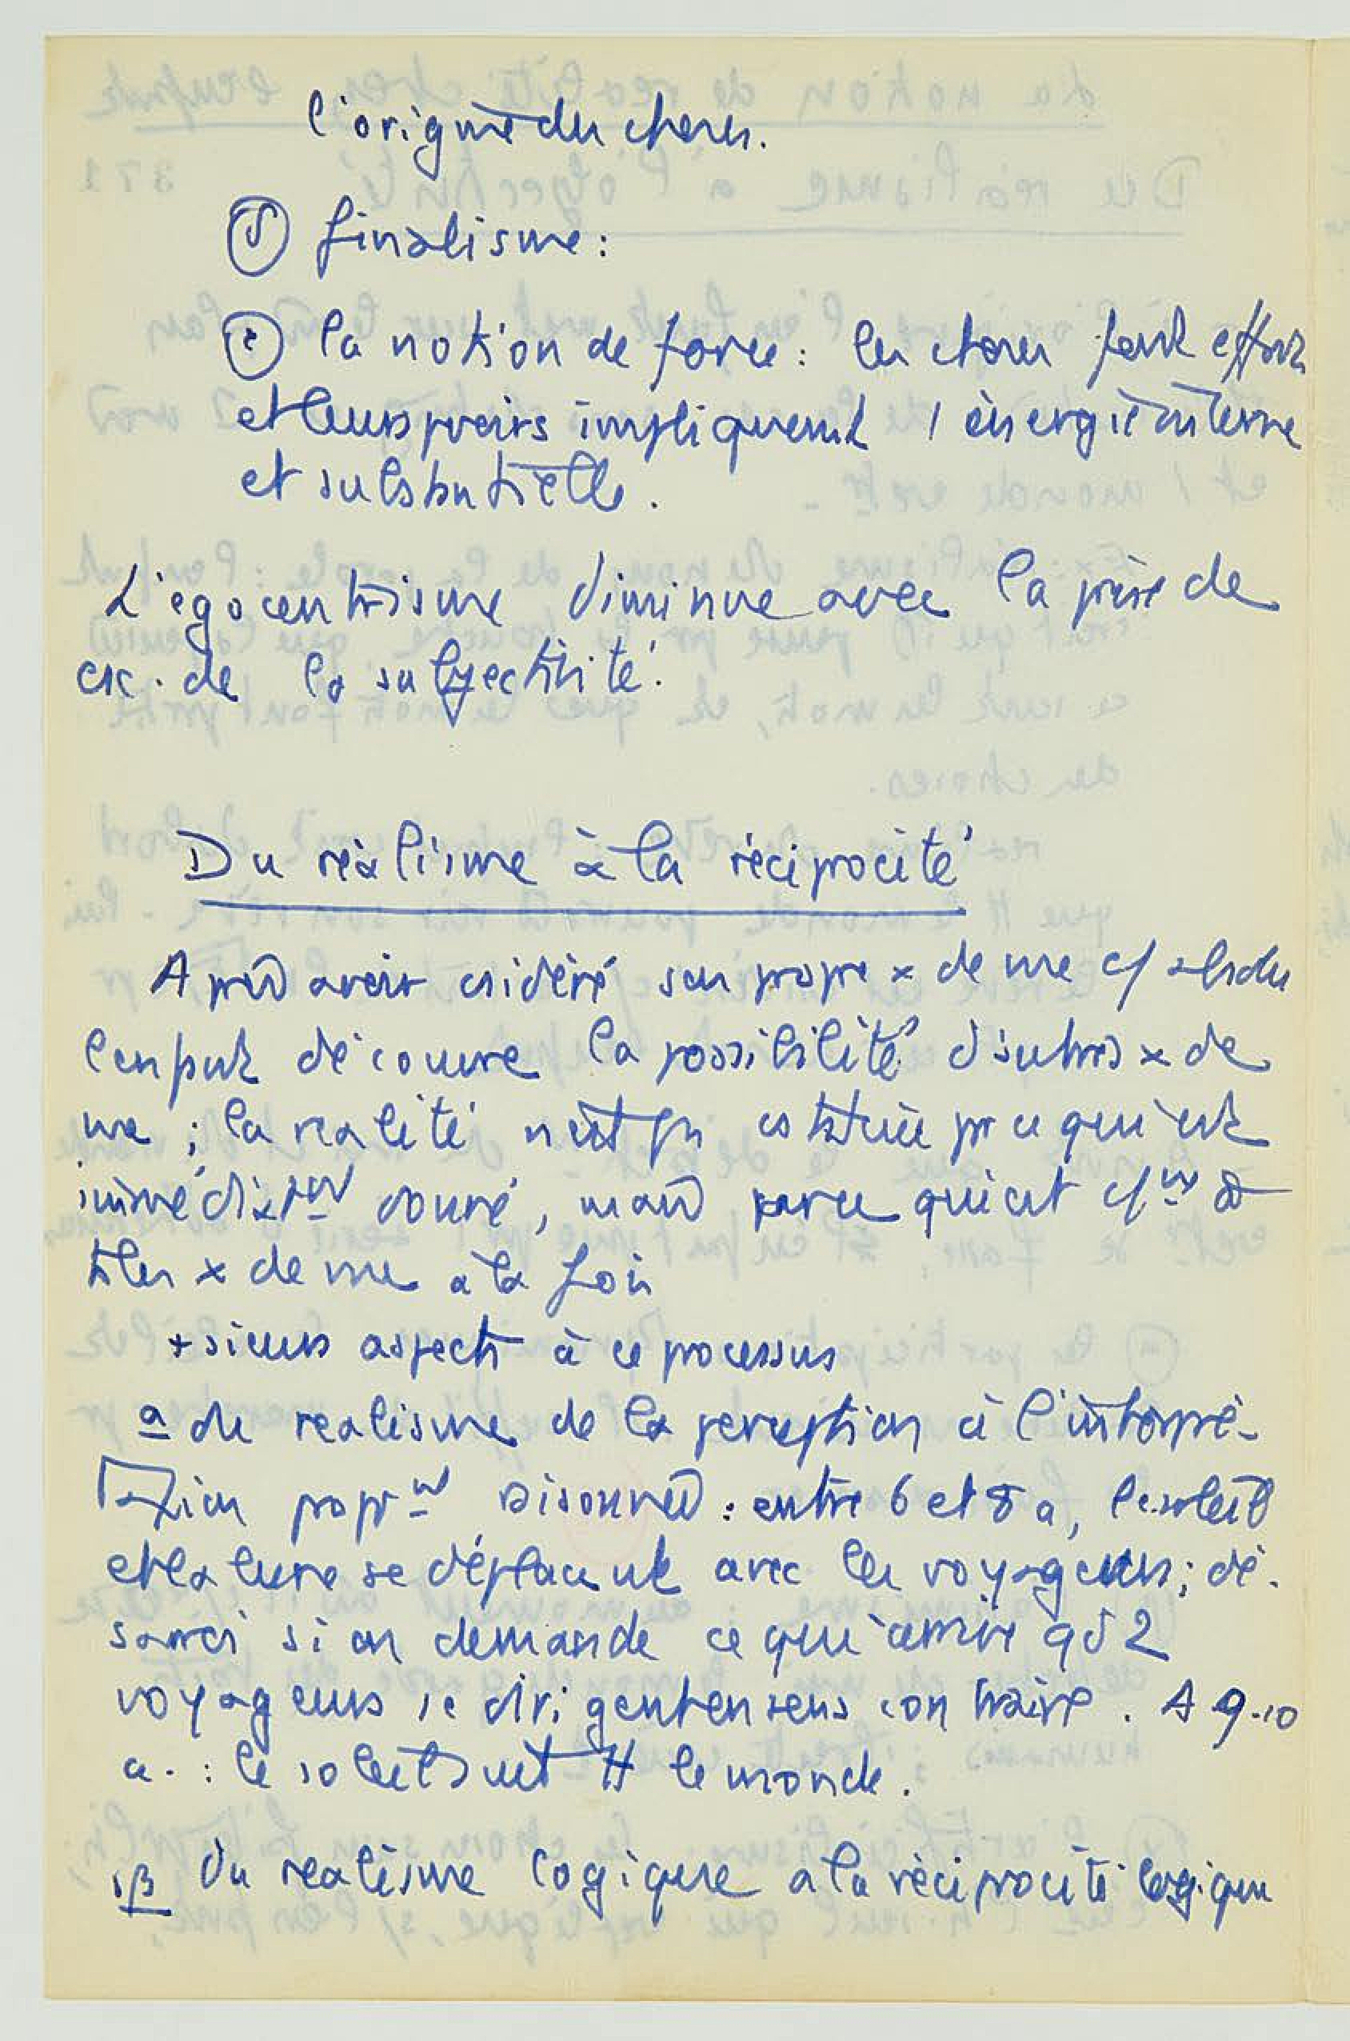 l'origine des choses.
δ finalisme :
ε la notion de force : les choses font effort
et leurs poids impliquent 1 énergie interne
et substantielle.
L'égocentrisme diminue avec la prise de
csc. de la subjectivité.
Du réalisme à la réciprocité
Après avoir csidéré son propre × de vue c/ absolu
l'enfant découvre la possibilité d'autres × de
vue ; la réalité n'est pas cstituée par ce qui est
immédiatmt donné, mais par ce qui est c/un à
ts les × de vue à la fois
+sieurs aspects à ce processus
a du réalisme de la perception à l'interpré-
tation proprmt raisonnée : entre 6 et 8 a, le soleil
et la lune se déplacent avec les voyageurs ; dé-
sarroi si on demande ce qui arrive qd 2
voyageurs se dirigent en sens contraire. A 9-10
a. : le soleil suit tt le monde.
β Du réalisme logique à la réciprocité logique